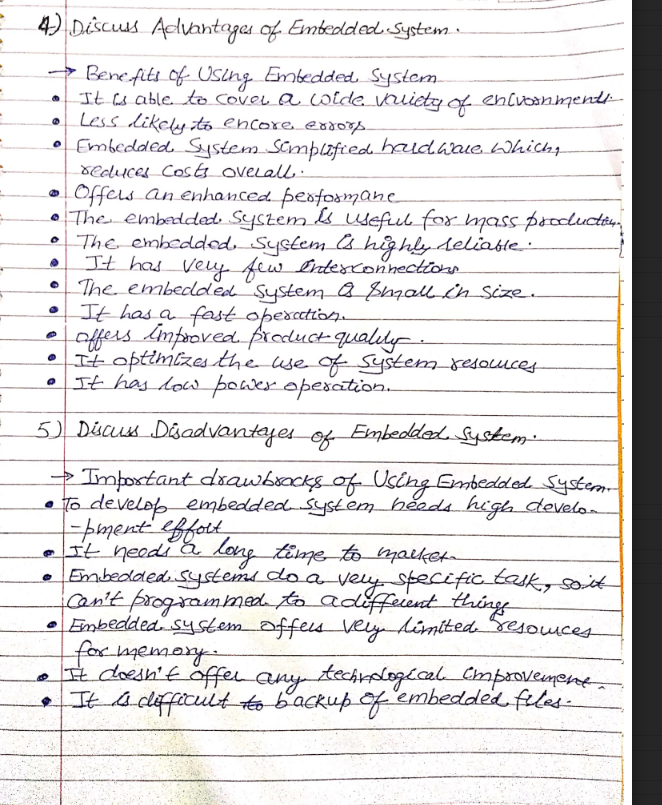 4) Discuss Advantages of Embedded System.
→ Benefits of Using Embedded System
• It is able to cover a wide variety of environments.
• Less likely to encore errors
• Embedded System Simplified hardware which,
reduces costs overall.
• Offers an enhanced performanc
• The embedded System is useful for mass production.
• The embedded System is highly reliable.
• It has very few interconnections
• The embedded System is Small in size.
• It has a fast operation.
• offers improved product quality.
• It optimizes the use of System resources
• It has low power operation.
5) Discuss Disadvantages of Embedded System.
→ Important drawbacks of Using Embedded System.
• To develop embedded system needs high develo-
-pment effort
• It needs a long time to market
• Embedded systems do a very specific task, so it
can't programmed to a different things
• Embedded system offers very limited resources
for memory.
• It doesn't offer any technological improvement.
• It is difficult to backup of embedded files.